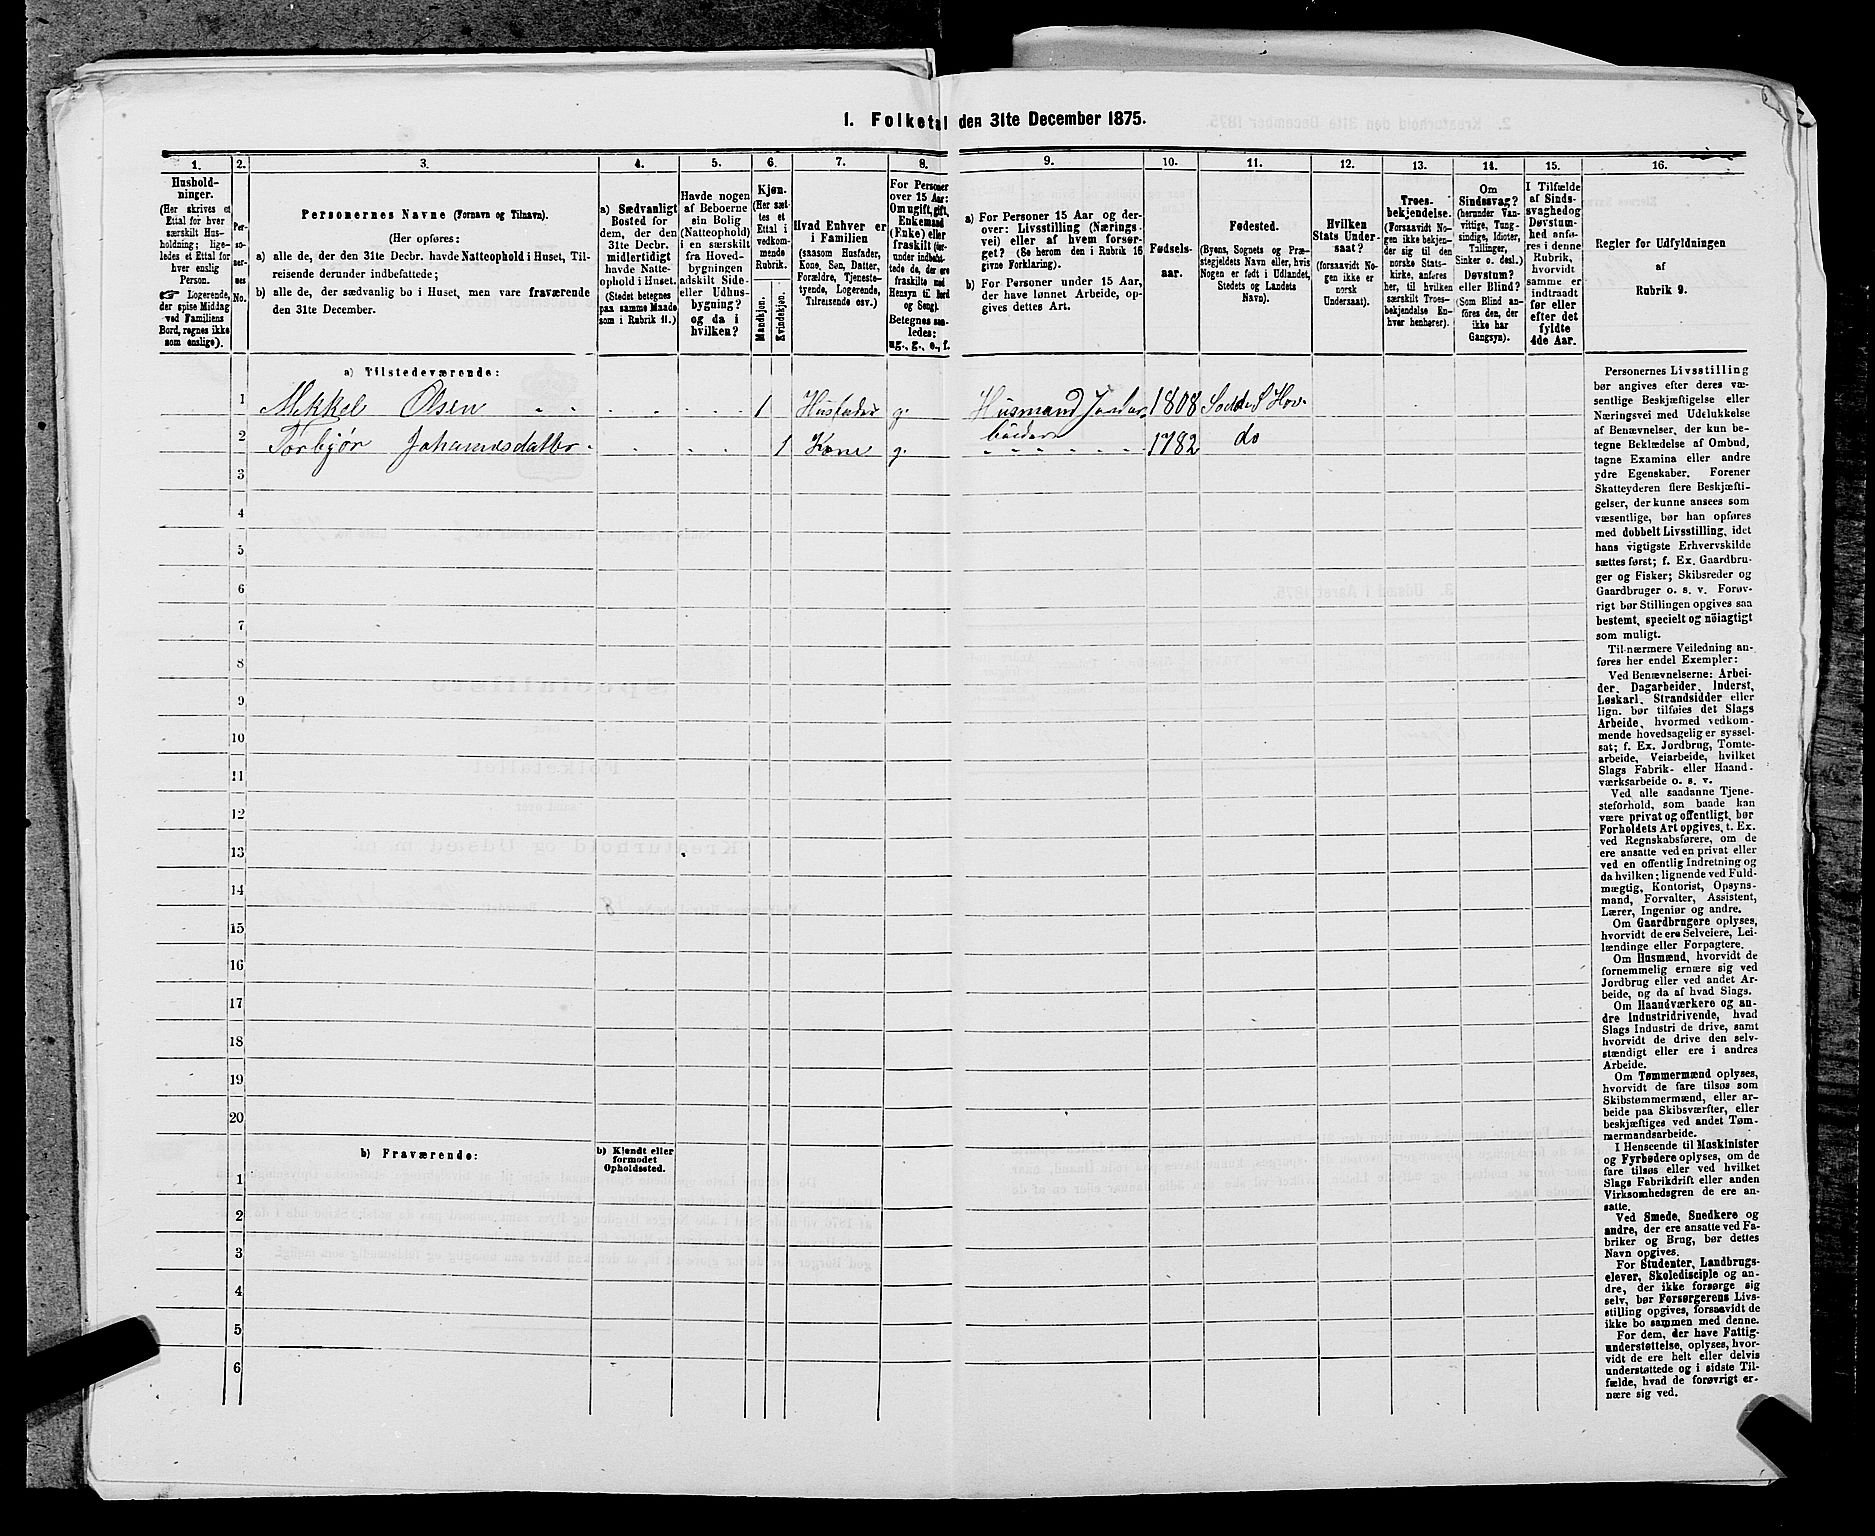 1. Folketal den 31te December 1875.
1.
Hushold-
ninger.
(Her skrives et
Ettal for hver
særskilt Hus-
holdning; lige-
ledes et Ettal for
hver enslig
Person.
☛ Logerende,
der spise Middag
ved Familiens
Bord, regnes ikke
som enslige).
2.
Per-
so-
ner-
nes
No.
3.
Personernes Navne (Fornavn og Tilnavn).
(Her opføres:
a) alle de, der den 31te Decbr. havde Natteophold i Huset, Til-
reisende derunder indbefattede;
b) alle de, der sædvanlig bo i Huset, men vare fraværende
den 31te December.
4.
a) Sædvanligt
Bosted for
dem, der den
31te Decbr.
midlertidigt
havde Natte-
ophold i Huset.
(Stedet betegnes
paa samme Maade
som i Rubrik 11.)
5.
Havde nogen
af Beboerne
sin Bolig
(Natteophold)
i en særskilt
fra Hoved-
bygningen
adskilt Side-
eller Udhus-
bygning?
og da i
hvilken?
6.
Kjøn.
(Her sæt-
tes et
Ettal i
vedkom-
mende
Rubrik.
Mandkjøn.
Kvindekjøn.
7.
Hvad Enhver er
i Familien
(saasom Husfader,
Kone, Søn, Datter,
Forældre, Tjeneste-
tyende, Logerende,
Tilreisende osv.)
8.
For Personer
over 15 Aar:
Om ugift, gift,
Enkemand
(Enke) eller
fraskilt (her-
under indbefat-
tede de, der ere
fraskilte med
Hensyn til Bord
og Seng).
Betegnes saa-
ledes:
ug., g., e., f.
9.
a) For Personer 15 Aar og der-
over: Livsstilling (Nærings-
vei) eller af hvem forsør-
get? (Se herom den i Rubrik 16
givne Forklaring).
b) For Personer under 15 Aar,
der have lønnet Arbeide, op-
gives dettes Art.
10.
Fødsels-
aar.
11.
Fødested.
(Byens, Sognets og Præ-
stegjeldets Navn eller, hvis
Nogen er født i Udlandet,
Stedets og Landets
Navn).
12.
Hvilken
Stats Under-
saat?
(forsaavidt No-
gen ikke er
norsk
Undersaat).
13.
Troes-
bekjendelse.
(Forsaavidt No-
gen ikke bekjen-
der sig til den
norske Stats-
kirke, anføres
her, til hvilken
særskilt Troes-
bekjendelse En-
hver henhører).
14.
Om
Sindssvag?
(herunder Van-
vittige, Tung-
sindige, Idioter,
Tullinger,
Sinker o. desl.)
Døvstum?
eller Blind?
(Som Blind an-
føres den, der
ikke har
Gangsyn).
15.
I Tilfælde
af Sinds-
svaghed og
Døvstum-
hed anfø-
res i denne
Rubrik,
hvorvidt
samme er
indtraadt
før eller
efter det
fyldte
4de Aar.
16.
Regler for Udfyldningen
af
Rubrik 9.
a) Tilstedeværende:
1 Mekkel Olsen 1 Husfader g. Husmand Jordar- 1808 Hov-
bruder
2 Torbjør Johannesdatter 1 Kone g. 1782 do
3
4
5
6
7
8
9
10
11
12
13
14
15
16
17
18
19
20
b) Fraværende:
b) Kjendt eller
formodet
Opholdssted.
1
2
3
4
5
6
Personernes Livsstilling
bør angives efter deres væ-
sentlige Beskjæftigelse eller
Næringsvei med Udelukkelse
af Benævnelser, der kun be-
tegne Beklædelse af Ombud,
tagne Examina eller andre
ydre Egenskaber. Forener
Skatteyderen flere Beskjæfti-
gelser, der kunne ansees som
væsentlige, bør han opføres
med dobbelt Livsstilling, idet
hans vigtigste Erhvervskilde
sættes først; f. Ex. Gaardbru-
ger og Fisker; Skibsreder og
Gaardbruger o. s. v. Forøv-
rigt bør Stillingen opgives saa
bestemt, specielt og nöiagtigt
som muligt.
Til nærmere Veiledning an-
føres her endel Exempler:
Ved Benævnelserne: Arbei-
der, Dagarbeider, Inderst,
Løskarl, Strandsidder eller
lign. bør tilføies det Slags
Arbeide, hvormed vedkom-
mende hovedsagelig er syssel-
sat; f. Ex. Jordbrug, Tomte-
arbeide, Veiarbeide, hvilket
Slags Fabrik- eller Haand-
værksarbeide o. s. v.
Ved alle saadanne Tjene-
steforhold, som baade kan
være privat og offentligt, bør
Forholdets Art opgives, t. Ex.
ved Regnskabsførere, om de
ere ansatte ved en privat eller
ved en offentlig Indretning og
da hvilken; lignende ved Fuld-
mægtig, Kontorist, Opsyns-
mand, Forvalter, Assistent,
Lærer, Ingeniør og andre.
Om Gaardbrugere oplyses,
hvorvidt de ere Selveiere, Lei-
lændinge eller Forpagtere.
Om Husmænd, hvorvidt de
fornemmelig ernære sig ved
Jordbrug eller ved andet Ar-
beide, og da af hvad Slags.
Om Haandværkere og an-
dre Industridrivende, hvad
Slags Industri de drive, samt
hvorvidt de drive den selv-
stændigt eller ere i andres
Arbeide.
Om Tømmermænd oplyses,
hvorvidt de fare tilsøs som
Skibstømmermænd, eller ar-
beide paa Skibsværfter, eller
beskjæftiges ved andet Tøm-
mermandsarbeide.
I Henseende til Maskinister
og Fyrbødere oplyses, om de
fare tilsøs eller ved hvilket
Slags Fabrikdrift eller anden
Virksomhedsgren de ere an-
satte.
Ved Smede, Snedkere og
andre, der ere ansatte ved Fa-
briker og Brug, bør dettes
Navn opgives.
For Studenter, Landbrugs-
elever, Skoledisciple og an-
dre, der ikke forsørge sig
selv, bør Forsørgerens Livs-
stilling opgives, forsaavidt de
ikke bo sammen med denne.
For dem, der have Fattig-
understøttelse, oplyses, hvor-
vidt de ere helt eller delvis
understøttede og i sidste Til-
fælde, hvad de forøvrigt er-
nære sig ved.